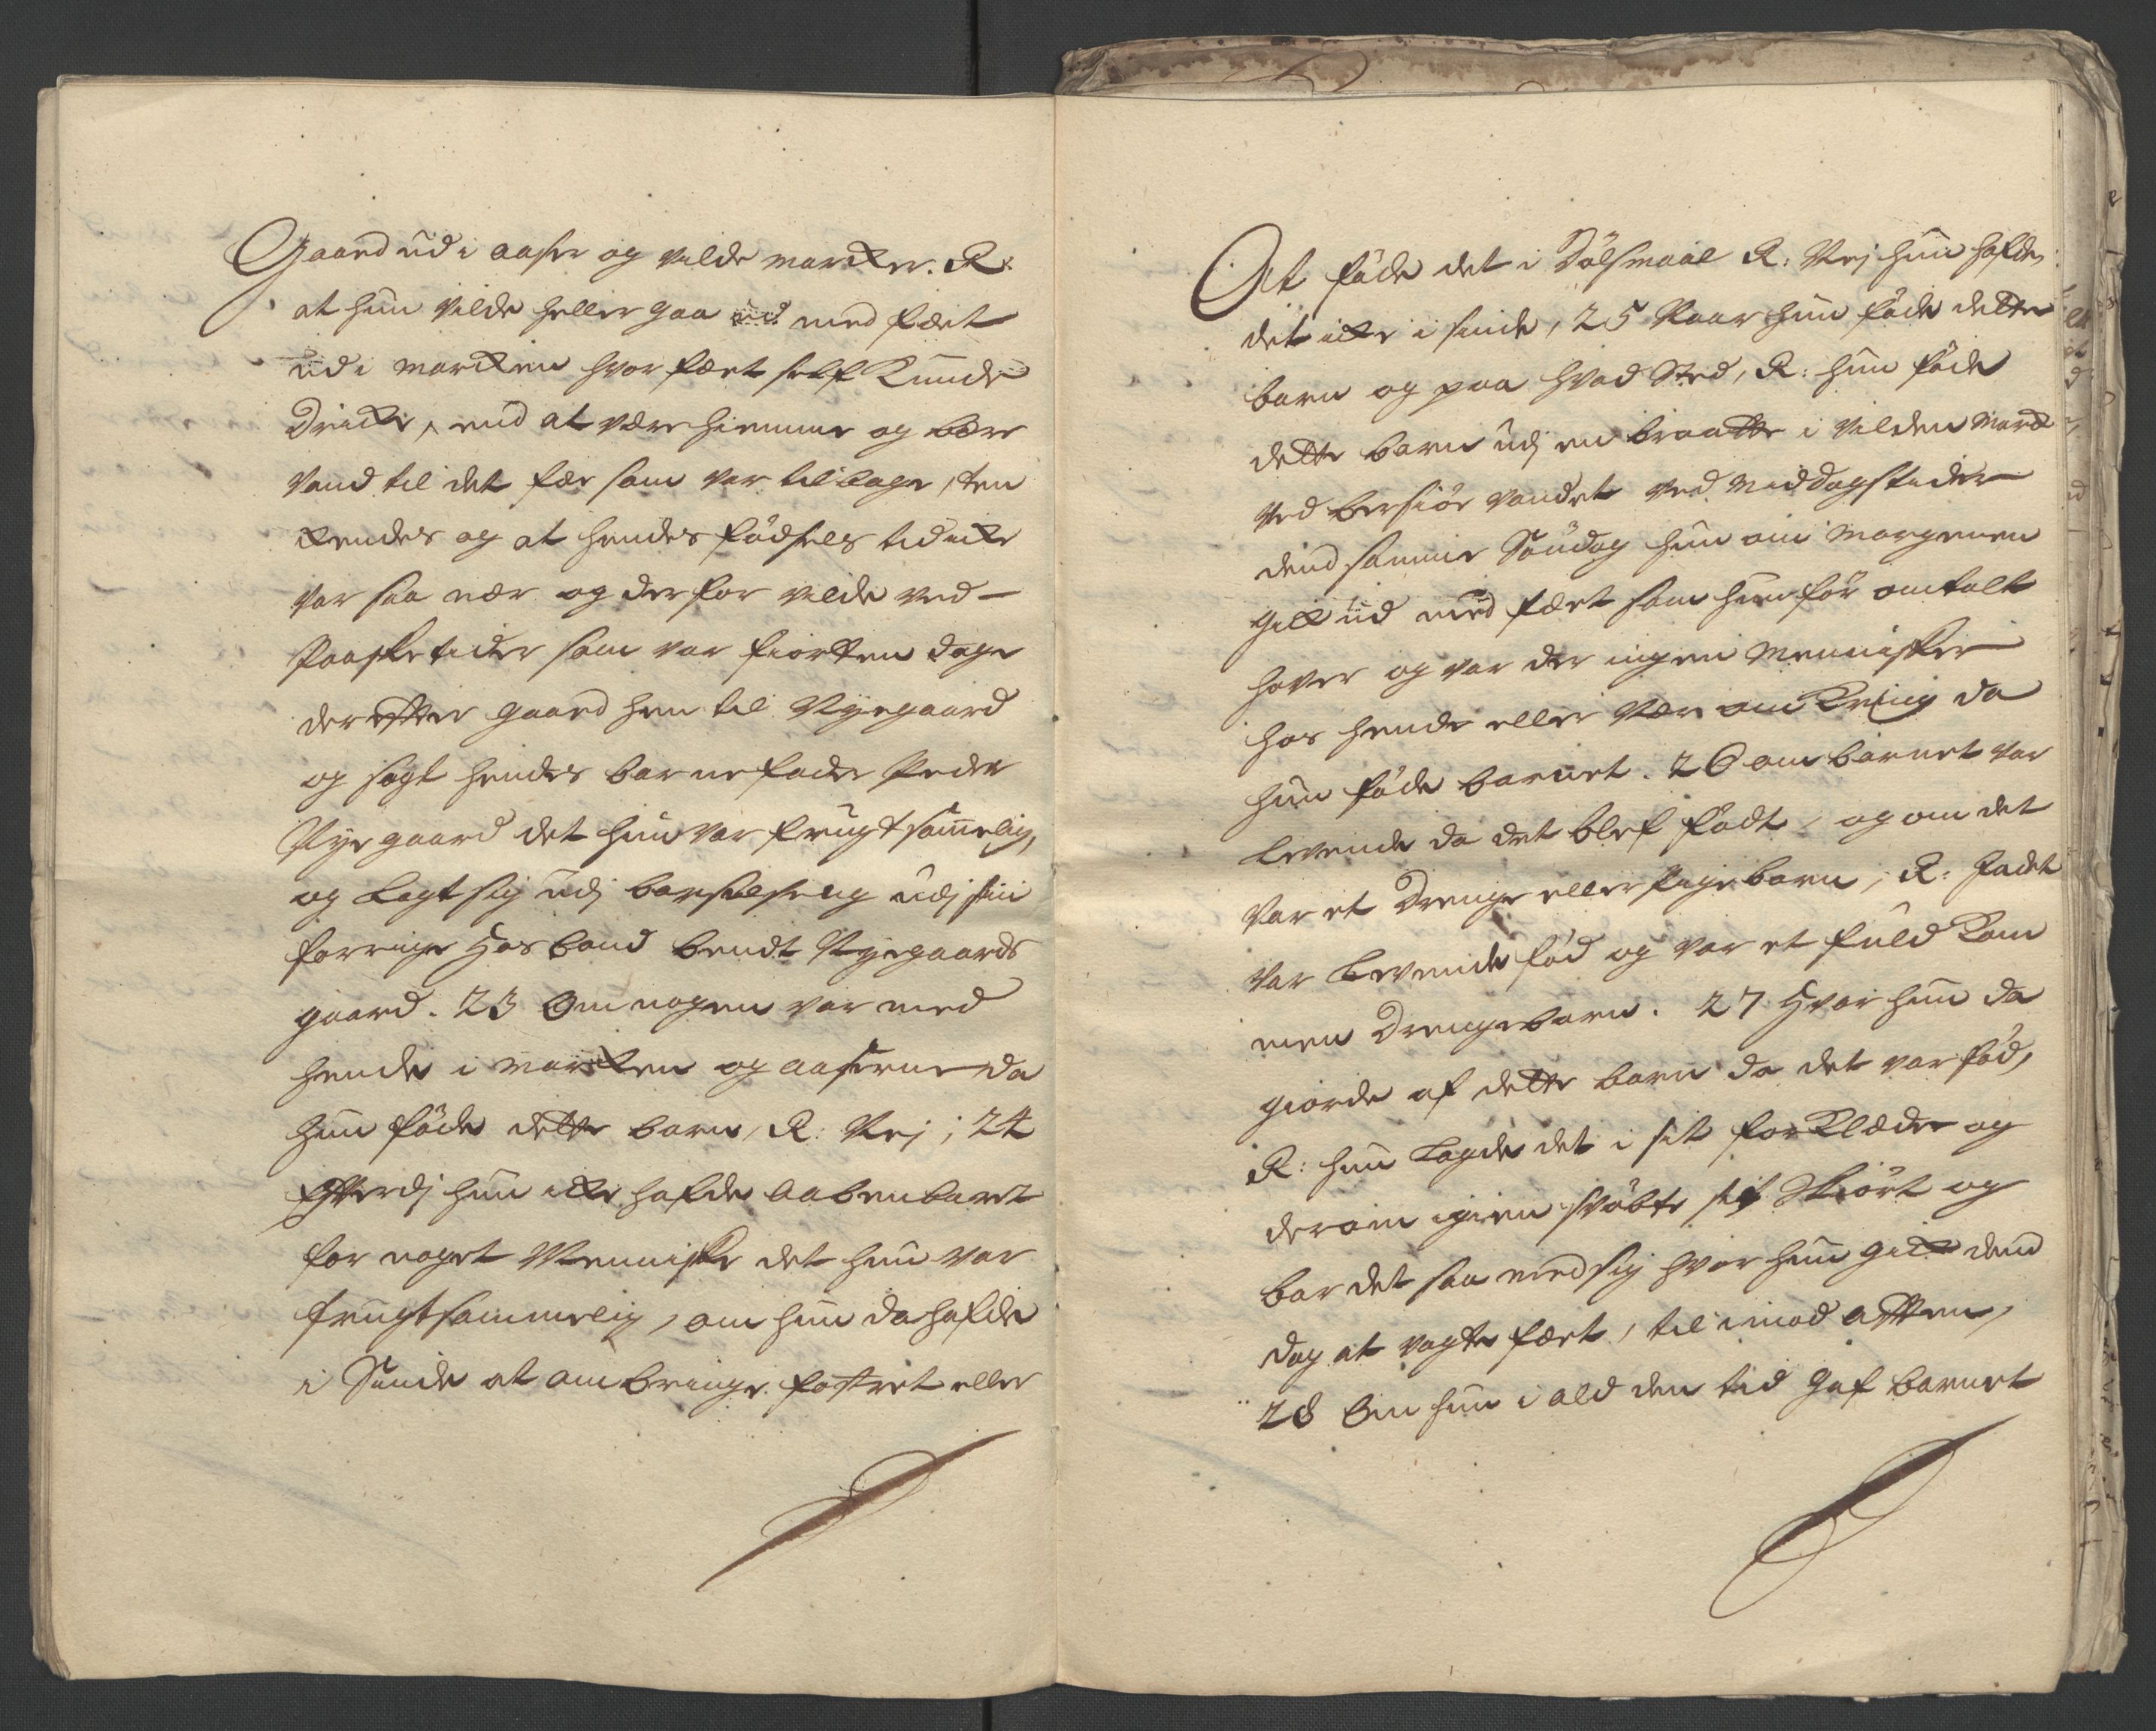 Gaaed ud i aaser og vilde marcker. R:
at hun vilde heller gaa ud med fæet
ud i marcken hvor fæet self kunde
dricke, end at være hiemme og bære
vand til det fæe som var tilbage, ten
ckendes og at hendes födsels tid icke
var saa nær og derfor vilde ved
Paaske tider som var fiorten dage
derefter gaaed hen til Nyegaard
og sagt hendes barnefader Peder
Nyegaard det hun var frugtsommelig,
og lagt sig udj barselseng udj sin
forrige Hosbond bendt Nyegaards
gaard. 23 Om nogen var med
hende i marcken og aaserne da
hun föde dette barn, R: Nej; 24
Efterdj hun icke hafde aabenbaret
for noget Menniske det hun var
frugtsommelig, om hun da hafde
i Sinde at ombringe fostret eller
At föde det i Dölsmaal R: Nej hun hafde
det icke i sinde, 25 Naar hun föde dette
barn og paa hvad Sted, R: hun föde
dette barn udj en braatte i vilden Marck
ved bersiöe vandet ved Middagstider
dend samme Söndag hun om Morgenen
gick ud med fæet som hun för omtalt
hafver og var der ingen Mennisker
hos hende eller nær omkring da
hun föde barnet. 26 om barnet var
levende da det blef födt, og om det
var et Drenge eller Pigebarn, R: Ja det
var levende föd og var et fuldkom
men Drengebarn. 27 Hvor hun da
giorde af dette barn da det var föd,
R: hun lagde det i sit forklæde og
derom igien svöbte sit Skiört og
bar det saa med sig hvor hun gick dend
dag at vogte fæet, til imod Aften,
28 Om hun i ald den tid gaf barnet